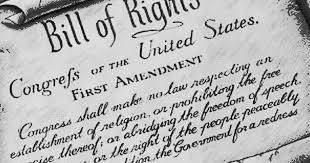 Bill of Rights
Congreſs OF THE United States.
FIRST AMENDMENT
Congress shall make no law respecting an
establishment of religion, or prohibiting the free
cise thereof; or abridging the freedom of speech,
or the right of the people peaceably
ition the Government for a redress